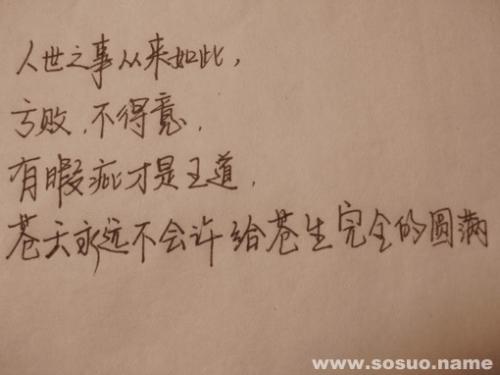 人世之事从来如此，
亏败.不得意.
有暇疵才是王道.
苍天永远不会许给苍生完全的圆满
www.sosuo.name